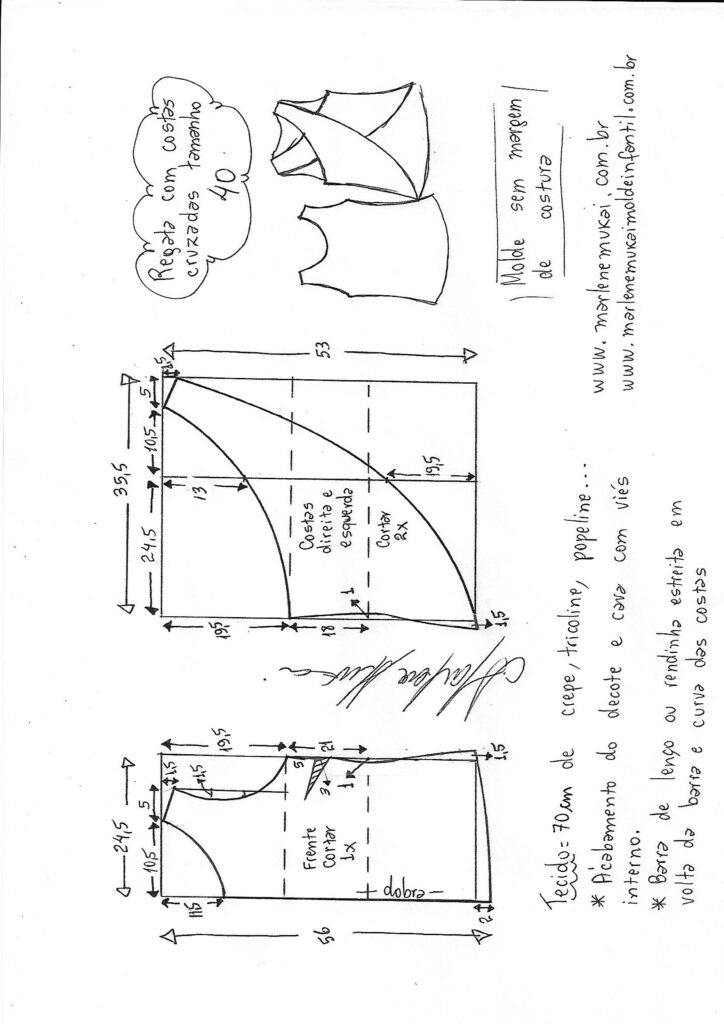 Regata com costas
cruzadas tamanho
40
Molde sem margem
de costura
www.marlenemukai.com.br
www.marlenemukaimoldeinfantil.com.br
35,5
24,5
10,5
5
1,5
53
13
19,5
19,5
18
1
1,5
Costas
direita e
esquerda
Cortar
2x
24,5
10,5
5
1,5
1,5
19,5
5
21
3
1
1,5
11,5
56
2
Frente
Cortar
1x
dobra
Tecido = 70cm de crepe, tricoline, popeline...
* Acabamento do decote e cava com viés
interno.
* Barra de lenço ou rendinha estreita em
volta da barra e curva das costas